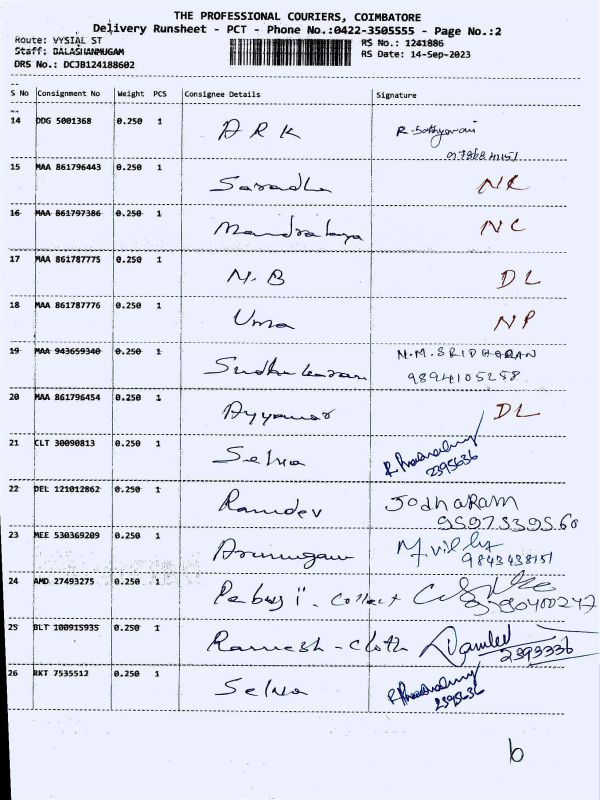 THE PROFESSIONAL COURIERS, COIMBATORE
Delivery Runsheet - PCT - Phone No.:0422-3505555 - Page No.:2
Route: VYSIAL ST
RS No.: 1241886
Staff: BALASHANMUGAM
RS Date: 14-Sep-2023
DRS No.: DCJB124188602
S No Consignment No Weight PCS Consignee Details Signature
14 DDG 5001368 0.250 1 A R K
15 MAA 861796443 0.250 1 Saradha NR
16 MAA 861797386 0.250 1 NC
17 MAA 861787775 0.250 1 M. B DL
18 MAA 861787776 0.250 1 Uma NP
19 MAA 943659340 0.250 1 M.M. SRIDHARAN
9894105258
20 MAA 861796454 0.250 1 DL
21 CLT 30090813 0.250 1 Selva
2395636
22 DEL 121012862 0.250 1 Ramdev JODHARAM
9597339560
23 MEE 530369209 0.250 1 Arumugam
9843438151
24 AMD 27493275 0.250 1 collect
25 BLT 100915935 0.250 1 Ramesh - cloth
2393336
26 RKT 7535512 0.250 1 Selva
2395636
b